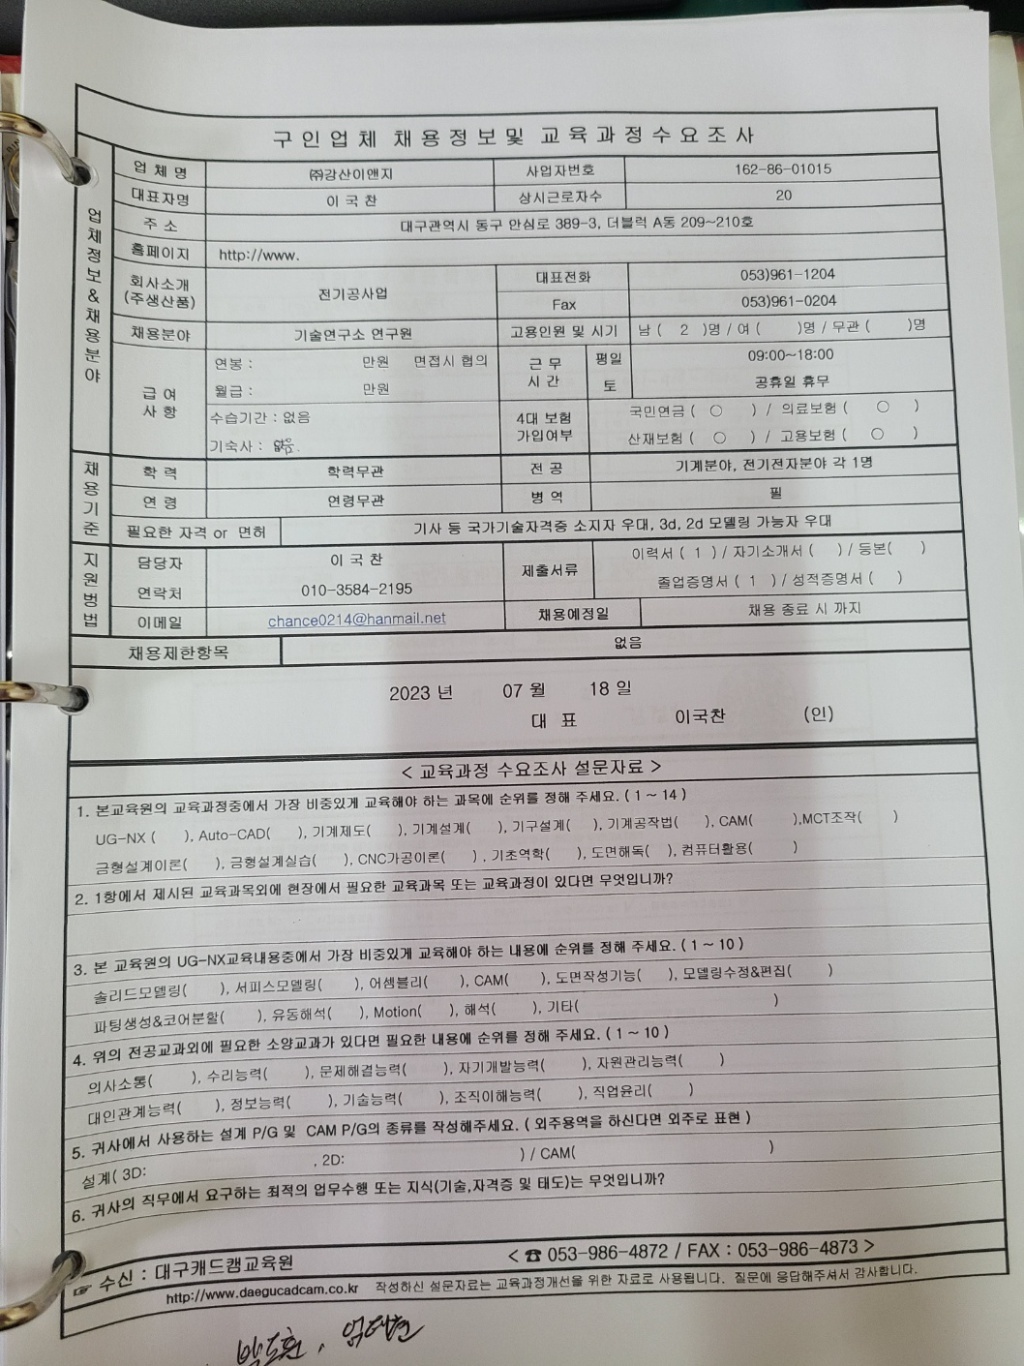 구인업체 채용정보및 교육과정수요조사
업체정보&채용분야
업 체 명 ㈜강산이앤지 사업자번호 162-86-01015
대표자명 이 국 찬 상시근로자수 20
주 소 대구관역시 동구 안심로 389-3, 더블럭 A동 209~210호
홈페이지 http://www.
회사소개 (주생산품) 전기공사업 대표전화 053)961-1204
Fax 053)961-0204
채용분야 기술연구소 연구원 고용인원 및 시기 남 ( 2 )명 / 여 ( )명 / 무관 ( )명
급 여 사 항 연봉 : 만원 면접시 협의 근 무 시 간 평일 09:00~18:00
월급 : 만원 토 공휴일 휴무
수습기간 : 없음 4대 보험 가입여부 국민연금 ( ○ ) / 의료보험 ( ○ )
기숙사 : 없음. 산재보험 ( ○ ) / 고용보험 ( ○ )
채용기준
학 력 학력무관 전 공 기계분야, 전기전자분야 각 1명
연 령 연령무관 병 역 필
필요한 자격 or 면허 기사 등 국가기술자격증 소지자 우대, 3d, 2d 모델링 가능자 우대
지원방법
담당자 이 국 찬 제출서류 이력서 ( 1 ) / 자기소개서 ( ) / 등본( )
연락처 010-3584-2195 졸업증명서 ( 1 ) / 성적증명서 ( )
이메일 chance0214@hanmail.net 채용예정일 채용 종료 시 까지
채용제한항목 없음
2023 년 07 월 18 일
대 표 이국찬 (인)
< 교육과정 수요조사 설문자료 >
1. 본교육원의 교육과정중에서 가장 비중있게 교육해야 하는 과목에 순위를 정해 주세요. ( 1 ~ 14 )
UG-NX ( ), Auto-CAD( ), 기계제도( ), 기계설계( ), 기구설계( ), 기계공작법( ), CAM( ),MCT조작( )
금형설계이론( ), 금형설계실습( ), CNC가공이론( ) , 기초역학( ), 도면해독( ), 컴퓨터활용( )
2. 1항에서 제시된 교육과목외에 현장에서 필요한 교육과목 또는 교육과정이 있다면 무엇입니까?
3. 본 교육원의 UG-NX교육내용중에서 가장 비중있게 교육해야 하는 내용에 순위를 정해 주세요. ( 1 ~ 10 )
솔리드모델링( ), 서피스모델링( ), 어셈블리( ), CAM( ), 도면작성기능( ), 모델링수정&편집( )
파팅생성&코어분할( ), 유동해석( ), Motion( ), 해석( ), 기타( )
4. 위의 전공교과외에 필요한 소양교과가 있다면 필요한 내용에 순위를 정해 주세요. ( 1 ~ 10 )
의사소통( ), 수리능력( ), 문제해결능력( ), 자기개발능력( ), 자원관리능력( )
대인관계능력( ), 정보능력( ), 기술능력( ), 조직이해능력( ), 직업윤리( )
5. 귀사에서 사용하는 설계 P/G 및 CAM P/G의 종류를 작성해주세요. ( 외주용역을 하신다면 외주로 표현 )
설계( 3D: , 2D: ) / CAM( )
6. 귀사의 직무에서 요구하는 최적의 업무수행 또는 지식(기술,자격증 및 태도)는 무엇입니까?
☞ 수신 : 대구캐드캠교육원 < ☎ 053-986-4872 / FAX : 053-986-4873 >
http://www.daegucadcam.co.kr 작성하신 설문자료는 교육과정개선을 위한 자료로 사용됩니다. 질문에 응답해주셔서 감사합니다.